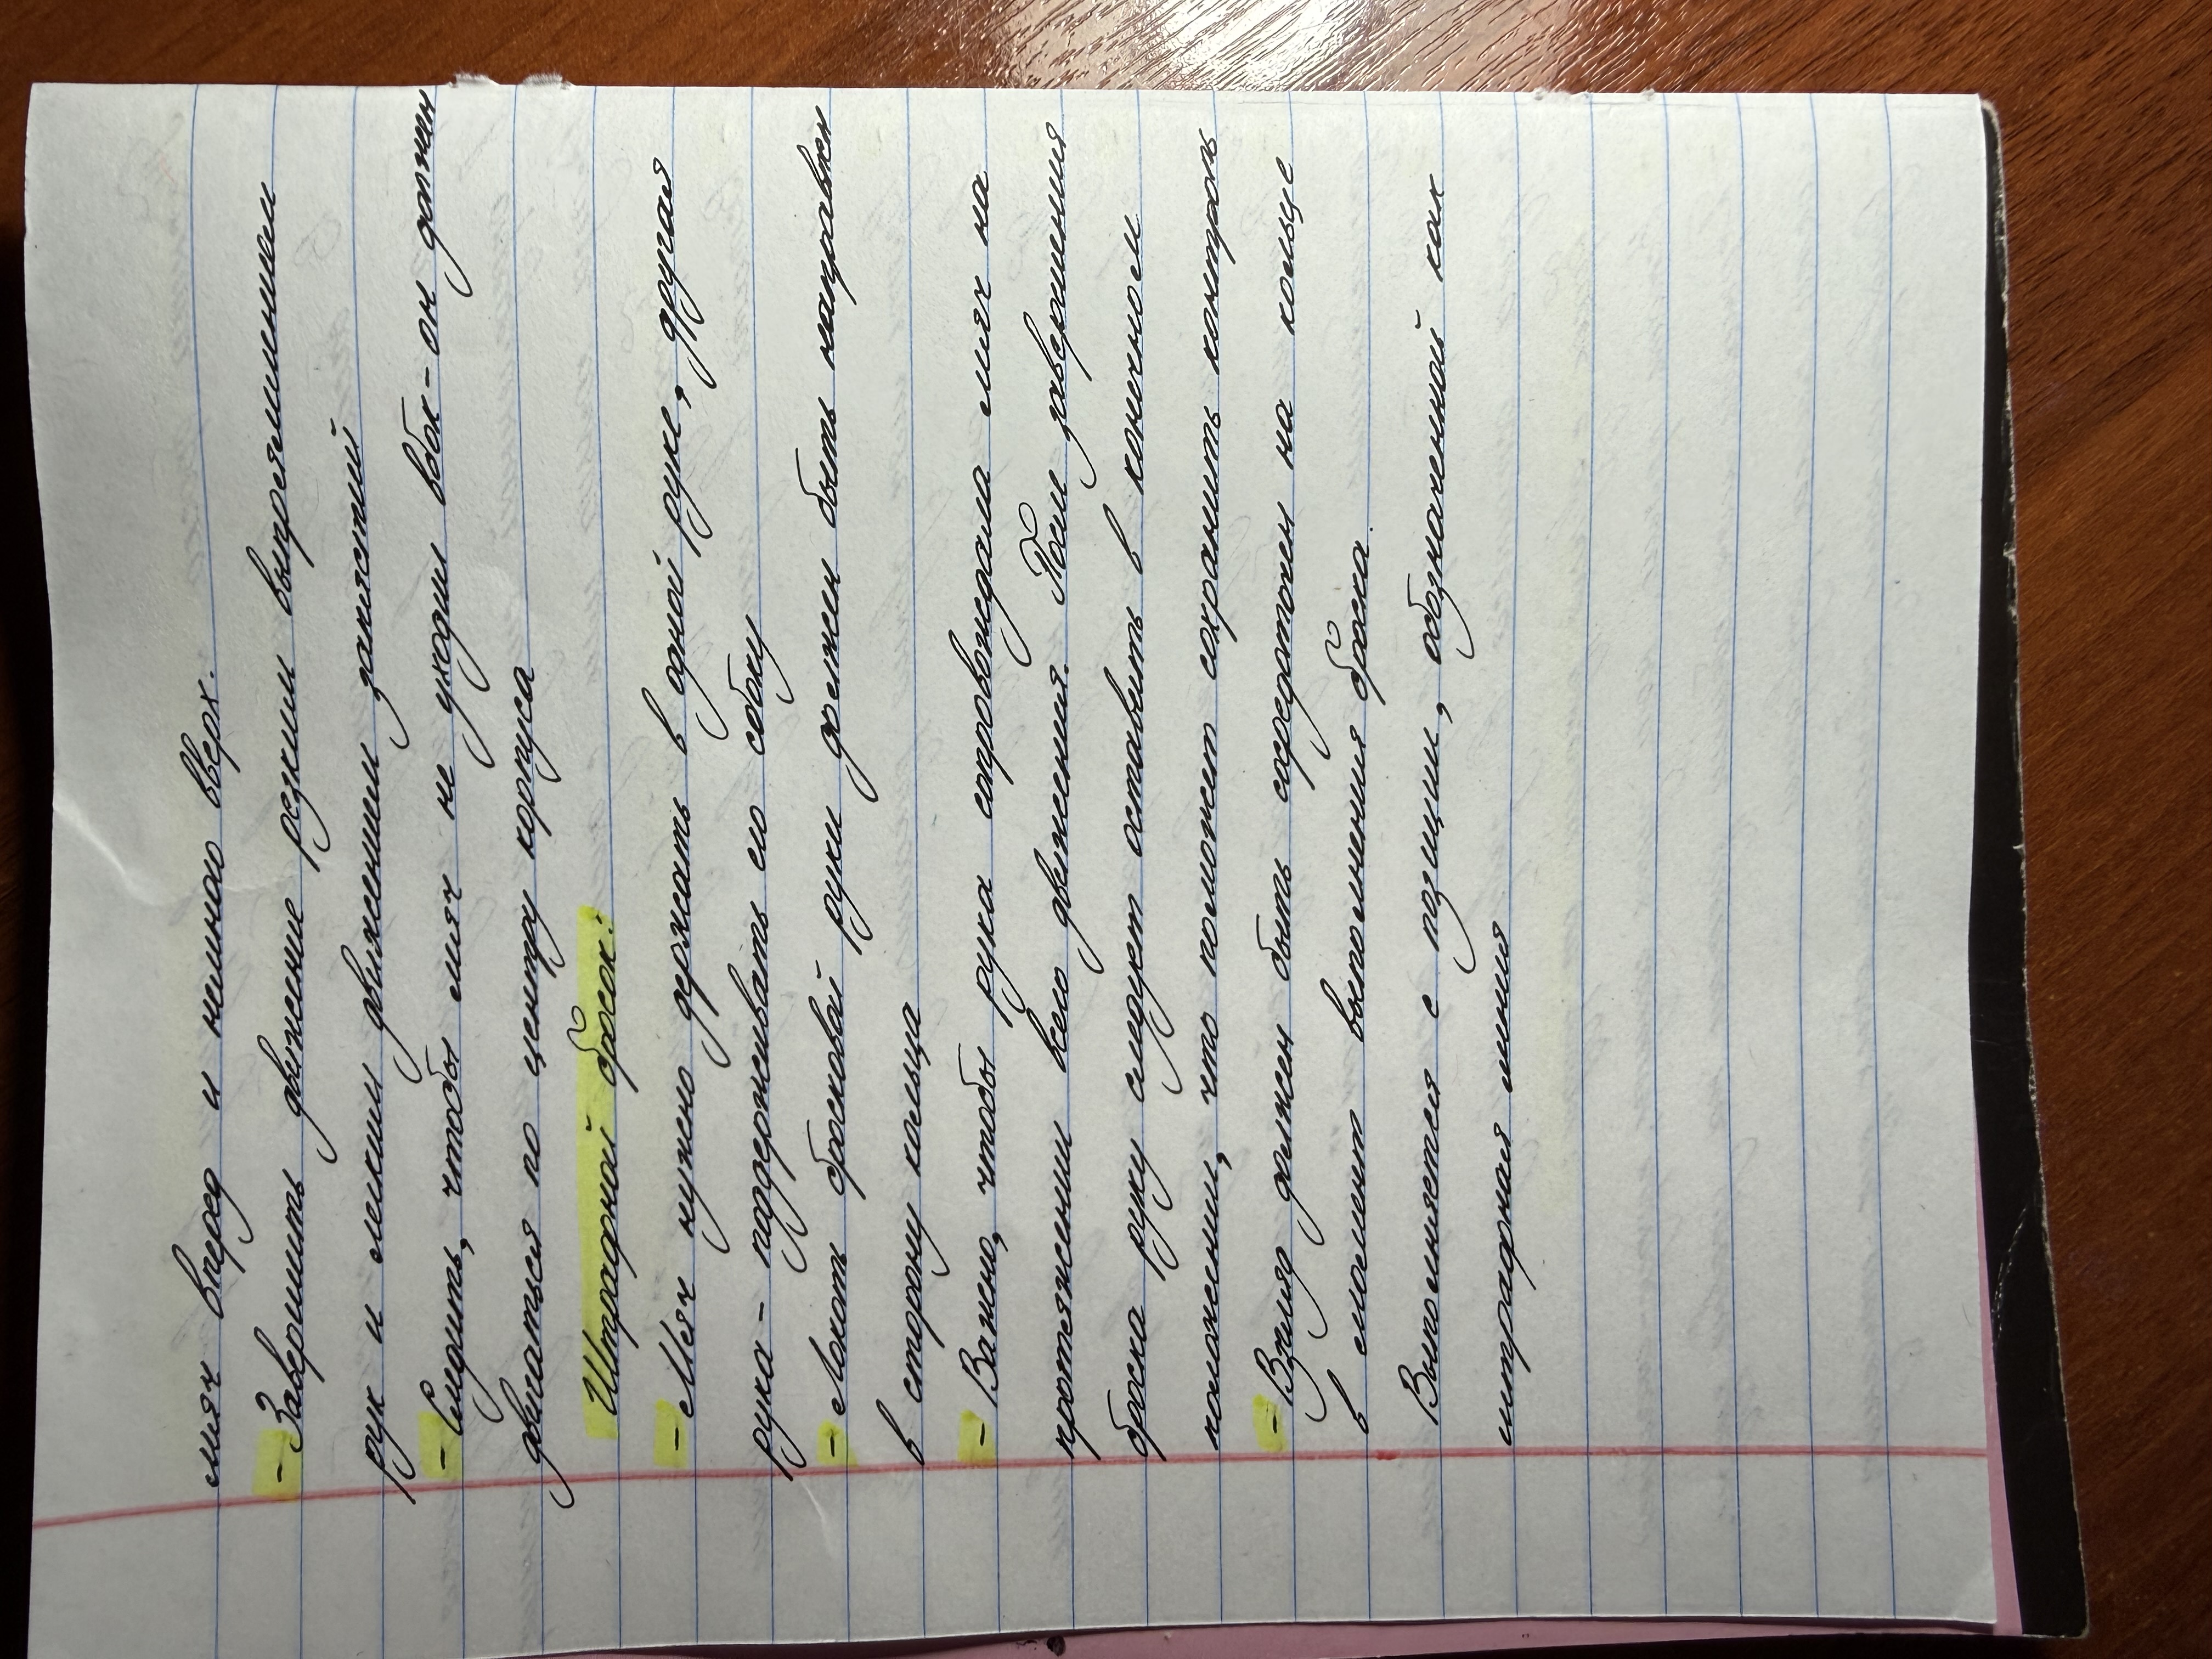 мяч вперед и немного вверх.
- Завершить движение резким выпрямлением
рук и мягким движением запястий
- Следить, чтобы мяч не уходил вбок - он должен
двигаться по центру корпуса
Штрафной бросок:
- Мяч нужно держать в одной руке, другая
рука - поддерживать его сбоку
- Локоть бросковой руки должен быть направлен
в сторону кольца
- Важно, чтобы рука сопровождала мяч на
протяжении всего движения. После завершения
броска руку следует оставить в конечном
положении, что поможет сохранить контроль
- Взгляд должен быть сосредоточен на кольце
в момент выполнения броска.
Выполняется с позиции, обозначенной как
штрафная линия